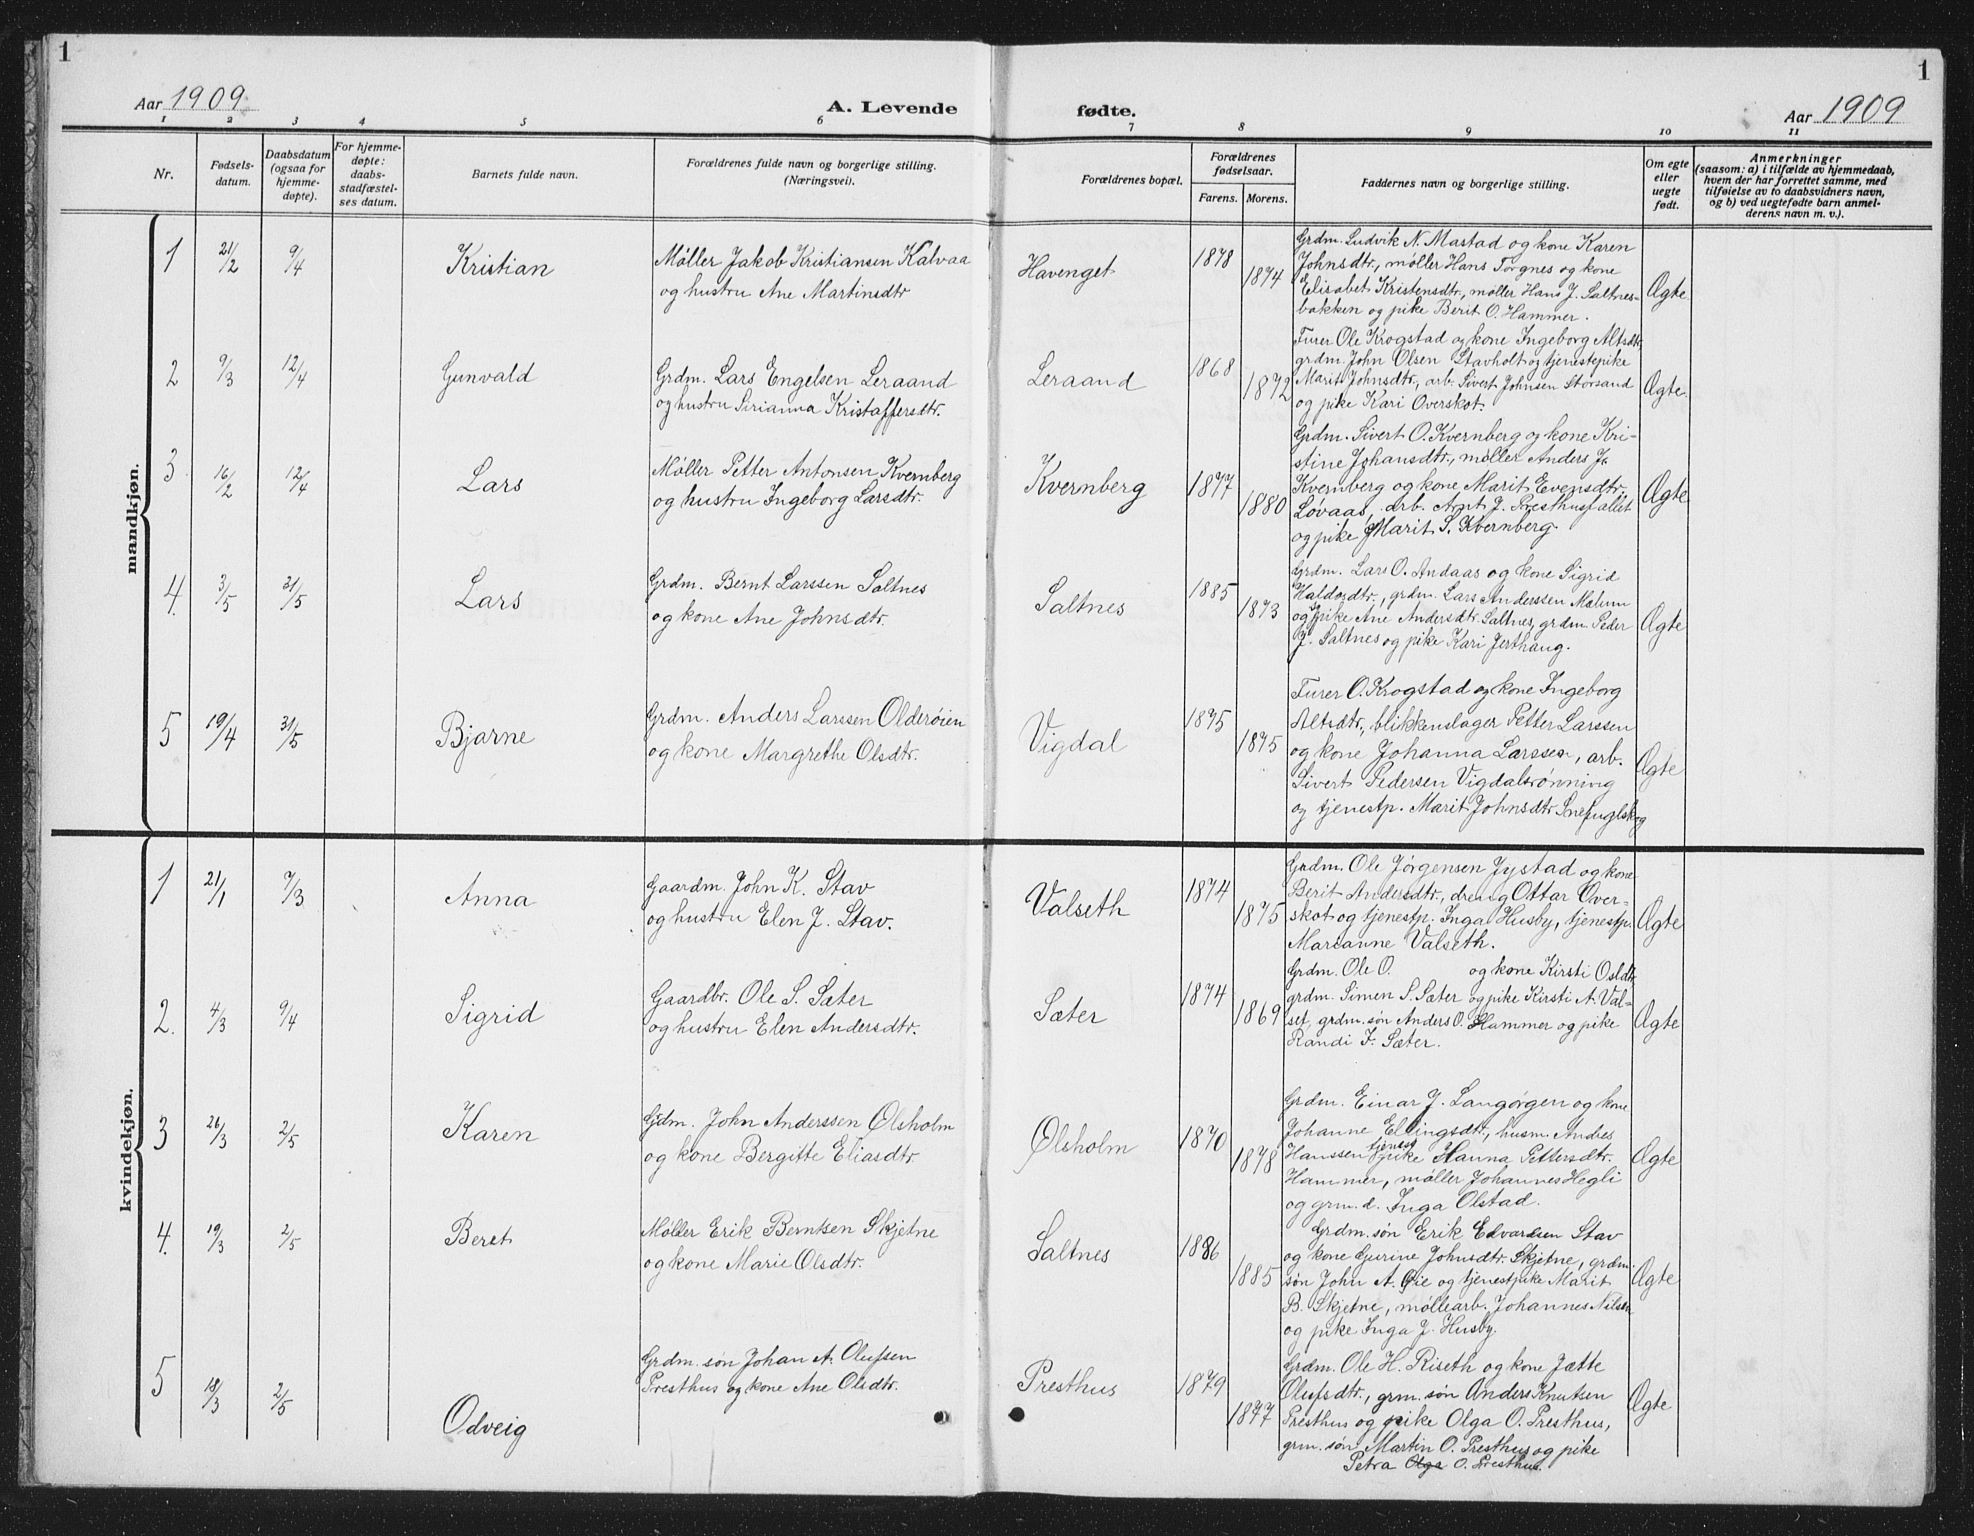 1
1
Aar 1909
A. Levende
fødte.
Aar 1909
1 2 3 4 5 6 7 8 9 10 11
Nr.
Fødsels-
datum.
Daabsdatum
(ogsaa for
hjemme-
døpte).
For hjemme-
døpte:
daabs-
stadfæstel-
ses datum.
Barnets fulde navn.
Forældrenes fulde navn og borgerlige stilling.
(Næringsvei).
Forældrenes bopæl.
Forældrenes
fødselsaar.
Farens. Morens.
Faddernes navn og borgerlige stilling.
Om egte
eller
uegte
født.
Anmerkninger
(saasom: a) i tilfælde av hjemmedaab,
hvem der har forrettet samme, med
tilføielse av to daabsvidners navn,
og b) ved uegtefødte barn anmel-
derens navn m. v.).
mandkjøn.
1 21/2 9/4 Kristian
Møller Jakob Kristiansen Kalvaa
og hustru Ane Martinsdtr
Havenget 1878 1874
Grdm. Ludvik N. Mastad og kone Karen
Johnsdtr., møller Hans Torgnes og kone
Elisabet Kristensdtr., møller Hans J. Saltnes-
bakken og pike Berit O. Hammer.
Ægte
2 9/3 12/4 Gunvald
Grdm. Lars Engelsen Leraand
og hustru Sirianna Kristaffersdtr.
Leraand 1868 1872
Furer Ole Krogstad og kone Ingeborg Altsdtr
grdm. John Olsen Stavholt og tjenestepike
Marit Johnsdtr, arb. Sivert Johnsen Storsand
og pike Kari Overskot.
Ægte.
3 16/2 12/4 Lars
Møller Petter Antonsen Kvernberg
og hustru Ingeborg Larsdtr.
Kvernberg 1877 1880
Grdm. Sivert O. Kvernberg og kone Kri-
stine Johansdtr., møller Anders J.
Kvernberg og kone Marit Evensdtr.
Løvaas, arb. Arnt J. Presthusfallet
og pike Marit S. Kvernberg.
Ægte
4. 3/5 31/5 Lars
Grdm. Bernt Larssen Saltnes
og kone Ane Johnsdtr.
Saltnes 1885 1873
Grdm. Lars O. Andaas og kone Sigrid
Haldosdtr., grdm. Lars Anderssen Mælum
og pike Ane Andersdtr. Saltnes, grdm. Peder
J. Saltnes og pike Kari Jerthaug.
Ægte
5 19/4 31/5 Bjarne
Grdm. Anders Larssen Olderøien
og kone Margrethe Olsdtr.
Vigdal 1875 1875
Furer O. Krogstad og kone Ingeborg
Altsdtr., blikkenslager Petter Larssen
og kone Johanna Larssen, arb.
Sivert Pedersen Vigdalsrønning
og tjenestp. Marit Johnsdtr Snefuglskog
Ægte
kvindekjøn.
1 21/1 7/3 Anna
Gaardm. John K. Stav
og hustru Elen J. Stav.
Valseth 1874 1875
Grdm. Ole Jørgensen Jystad og kone
Berit Andersdtr., dreng Ottar Over-
skot og tjenestp. Inga Husby, tjenestp.
Marianne Valseth.
Ægte
2. 4/3 9/4 Sigrid
Gaardbr. Ole S. Sæter
og hustru Elen Andersdtr.
Sæter 1874 1869
Grdm. Ole O. og kone Kirsti Osldtr
grdm. Simen S. Sæter og pike Kirsti A. Val-
set, grdm. søn Anders O. Hammer og pike
Randi F. Sæter.
Ægte
3 26/3 2/5 Karen
Grdm. John Anderssen Ølsholm
og kone Bergitte Eliasdtr
Ølsholm 1870 1878
Grdm. Einar J. Langørgen og kone
Johanne Ellingsdtr., husm. Andres
Hanssen tjenest pike Hanna Pettersdtr.
Hammer, møller Johannes Hegli
og grm.d. Inga Olstad.
Ægte
4. 19/3 2/5 Beret
Møller Erik Berntsen Skjetne
og kone Marie Olsdtr.
Saltnes 1886 1885
Grdm. søn Erik Edvardsen Stav
og kone Gurine Johnsdtr. Skjetne, grdm.
søn John A. Øie og tjenestpike Marit
B. Skjetne, møllearb. Johannes Nilsen
og pike Inga J. Husby.
Ægte
5 18/3 2/5 Odveig
Grdm. søn Johan A. Olufsen
Presthus og kone Ane Olsdtr.
Presthus 1879 1877
Grdm. Ole H. Riseth og kone Jætte
Olufsdtr., grm. søn Anders Knutsen
Presthus og pike Olga O. Presthus,
grm. søn Martin O. Presthus og pike
Petra Olga O. Presthus.
Ægte